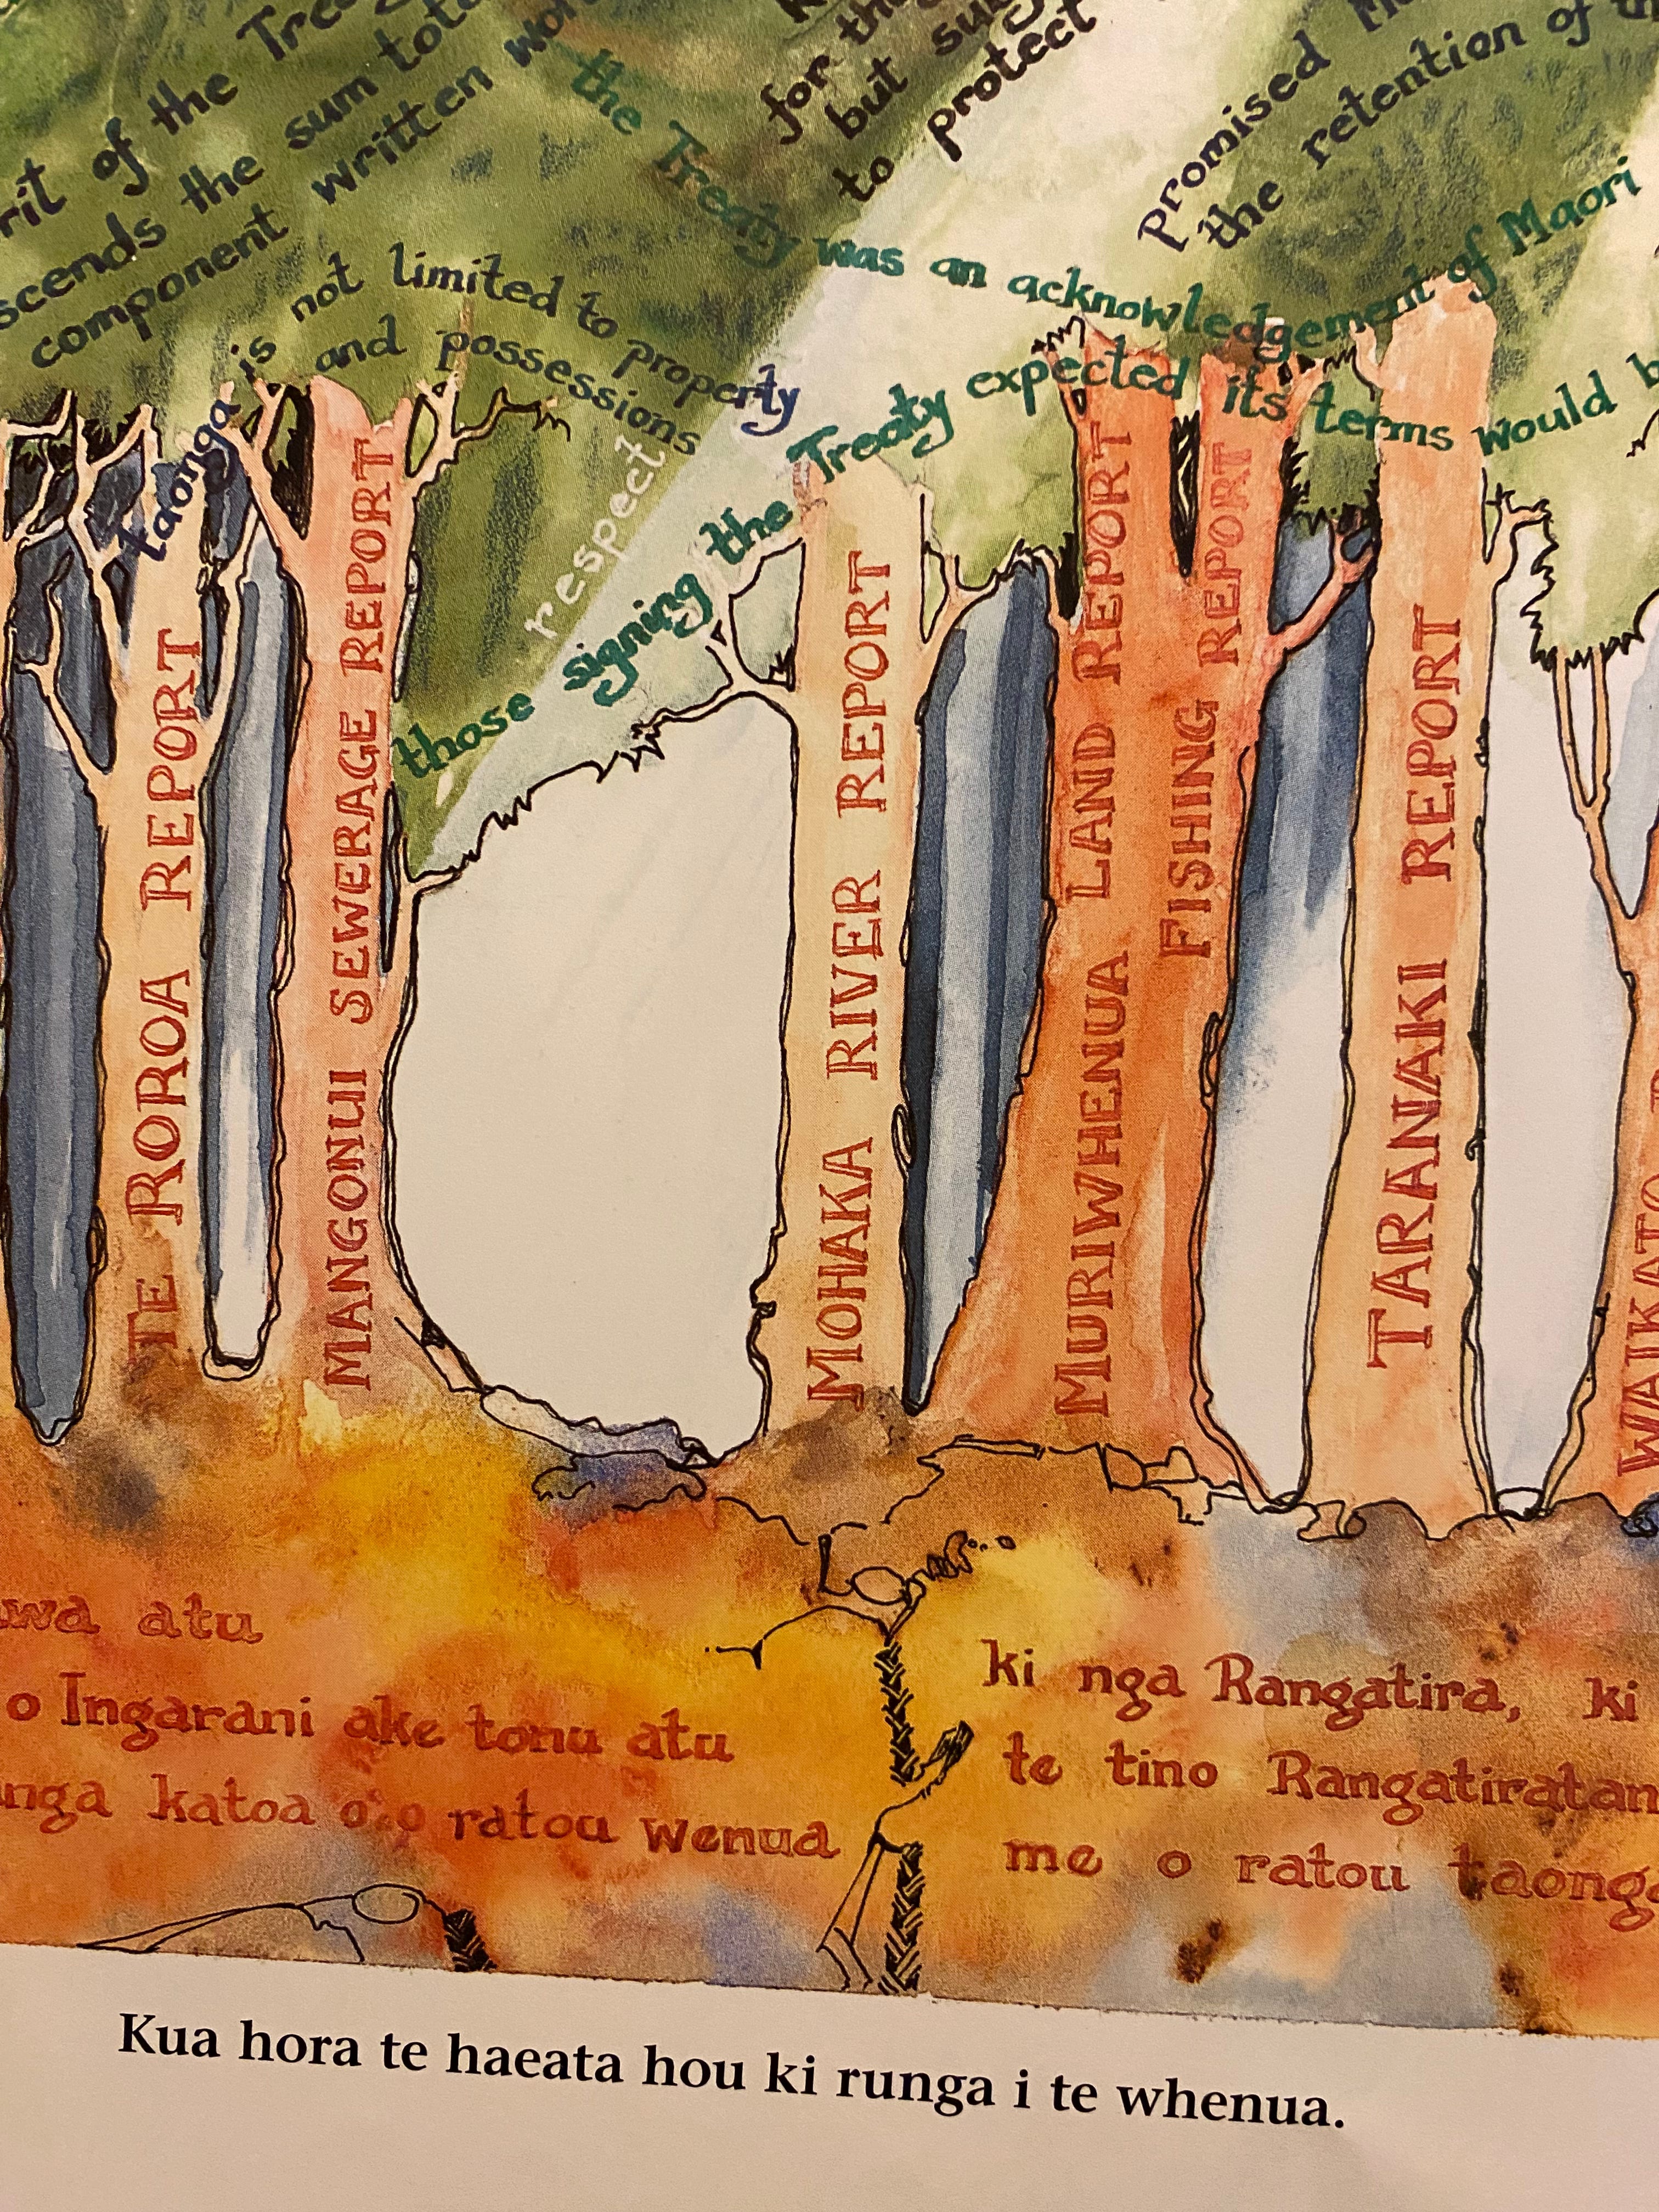 of the
scends the sum
component written
for
but
to protect
promised
the retention of
the Treaty was an acknowledgement of Maori
taonga is not limited to property
and possessions
respect
those signing the Treaty expected its terms would
TE ROROA REPORT
MANGONUI SEWERAGE REPORT
MOHAKA RIVER REPORT
MURIWHENUA LAND REPORT
FISHING REPORT
TARANAKI REPORT
WAIKATO
atu
o Ingarani ake tonu atu
katoa o o ratou wenua
ki nga Rangatira, ki
te tino Rangatiratan
me o ratou taonga
Kua hora te haeata hou ki runga i te whenua.